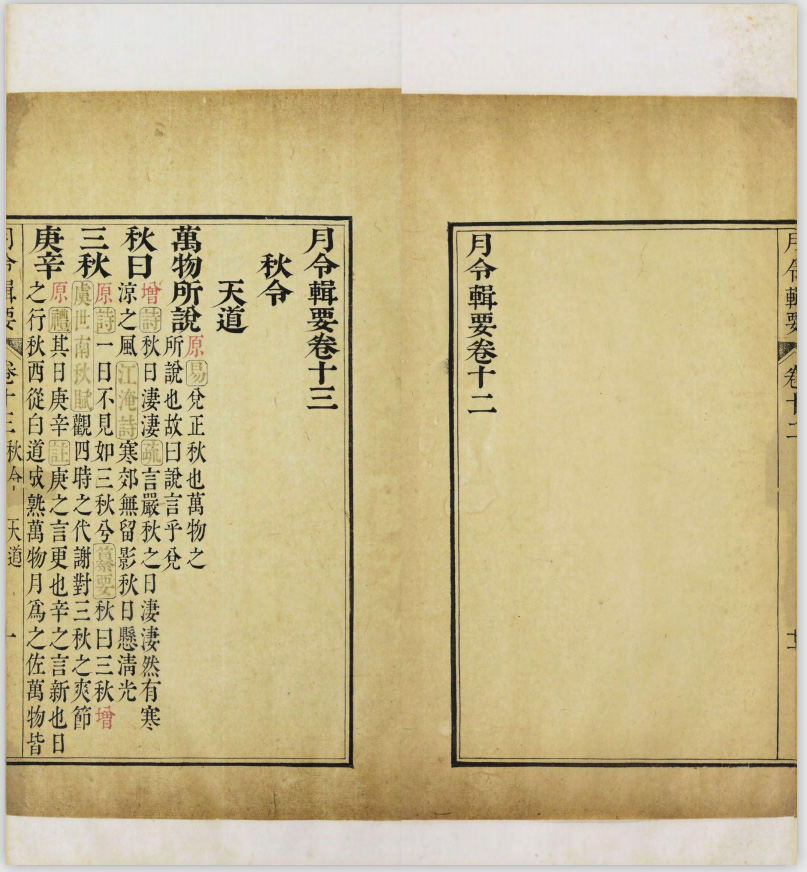 月令輯要卷十二
卷十二
月令輯要卷十三
秋令
天道
萬物所說原易兌正秋也萬物之
所說也故曰說言乎兌
秋日增詩秋日淒淒疏言嚴秋之日淒淒然有寒
涼之風江淹詩寒郊無留影秋日懸淸光
三秋原詩一日不見如三秋兮纂要秋曰三秋增
虞世南秋賦觀四時之代謝對三秋之爽節
庚辛原禮其日庚辛註庚之言更也辛之言新也日
之行秋西從白道成熟萬物月爲之佐萬物皆
月令輯要 卷十三 秋令 天道 一